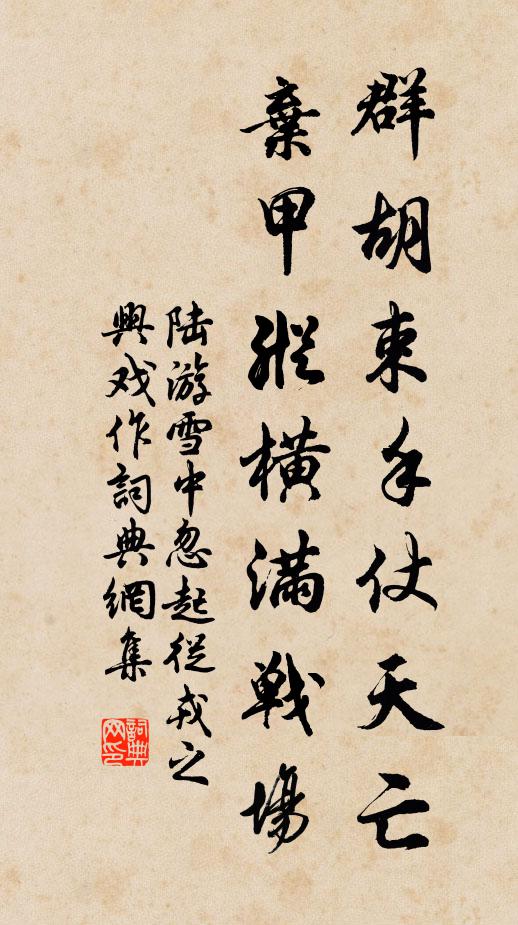 群胡束手仗天亡
棄甲縱橫滿戰場
陆游雪中忽起從戎之
興戏作詞典網集
詞典网印